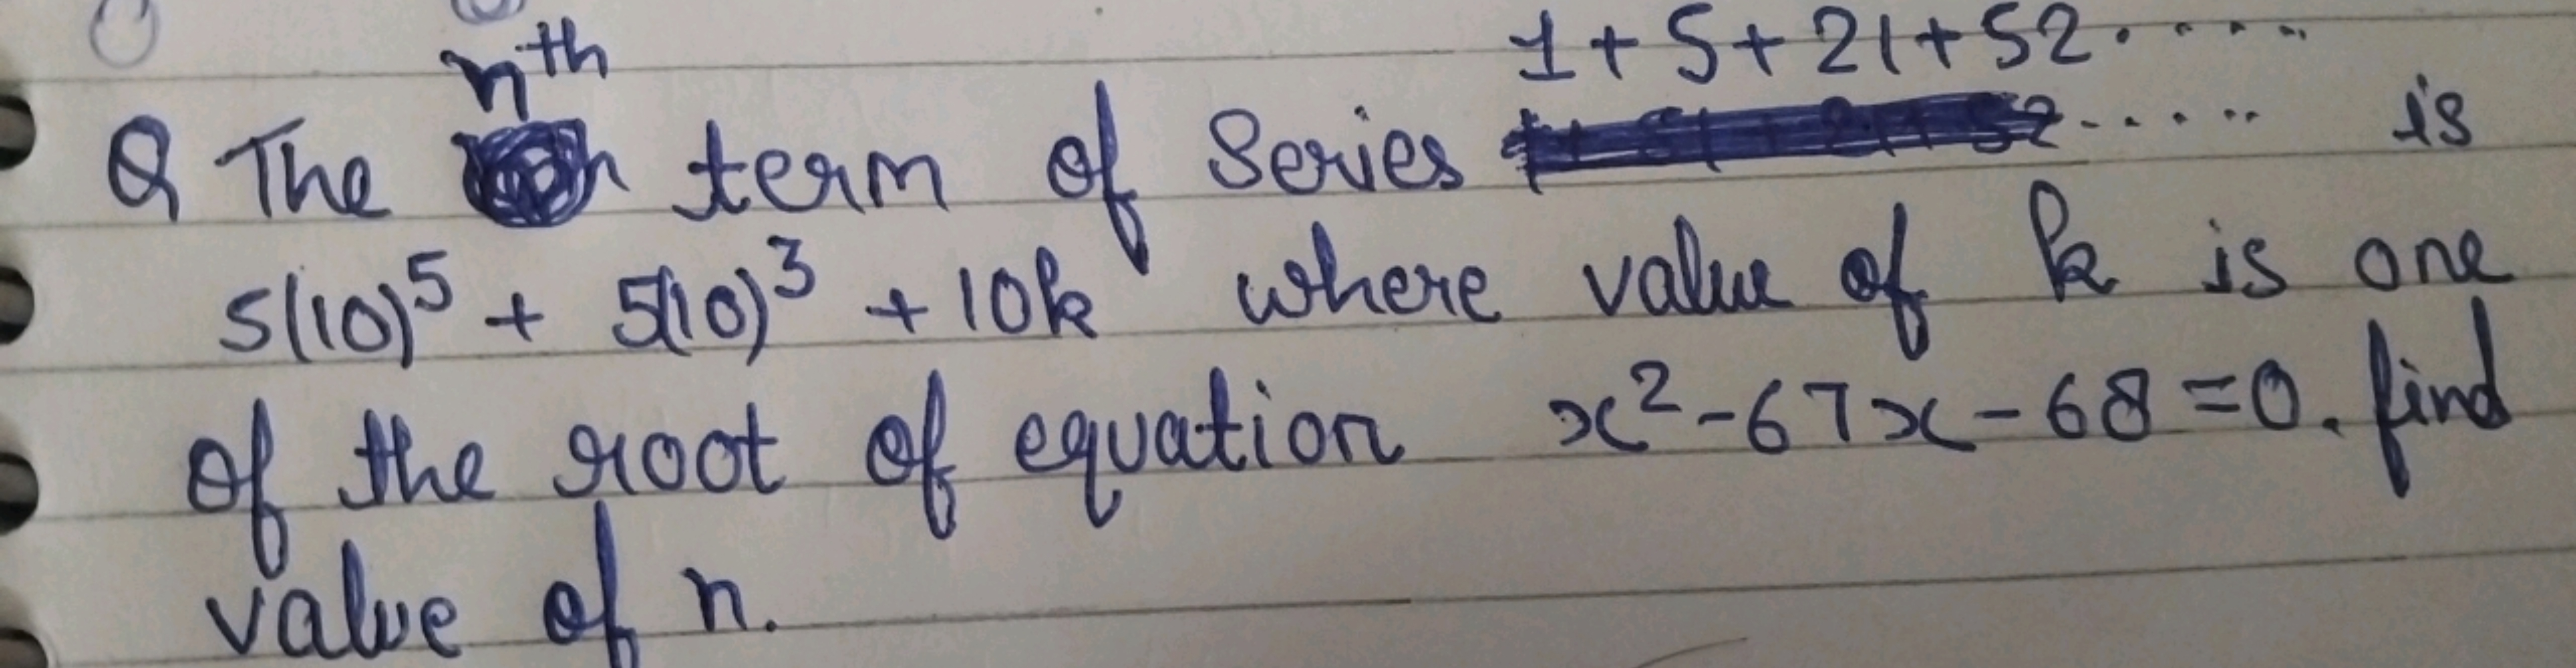 1 + 5 + 21 + 52.....
nth
Q The term of Series ..... is
5(10)^5 + 5(10)^3 + 10k where value of k is one
of the root of equation x² - 67x - 68 = 0. find
value of n.